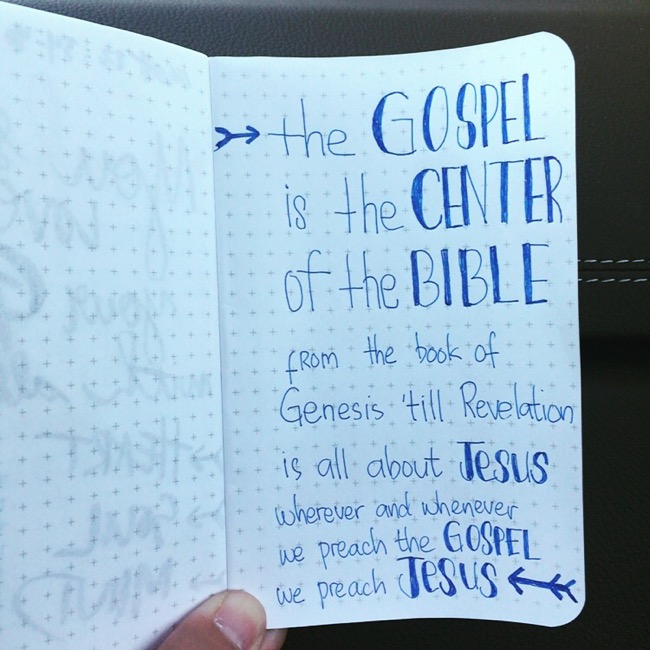 the GOSPEL
is the CENTER
of the BIBLE
from the book of
Genesis 'till Revelation
is all about Jesus
wherever and whenever
we preach the GOSPEL
we preach Jesus